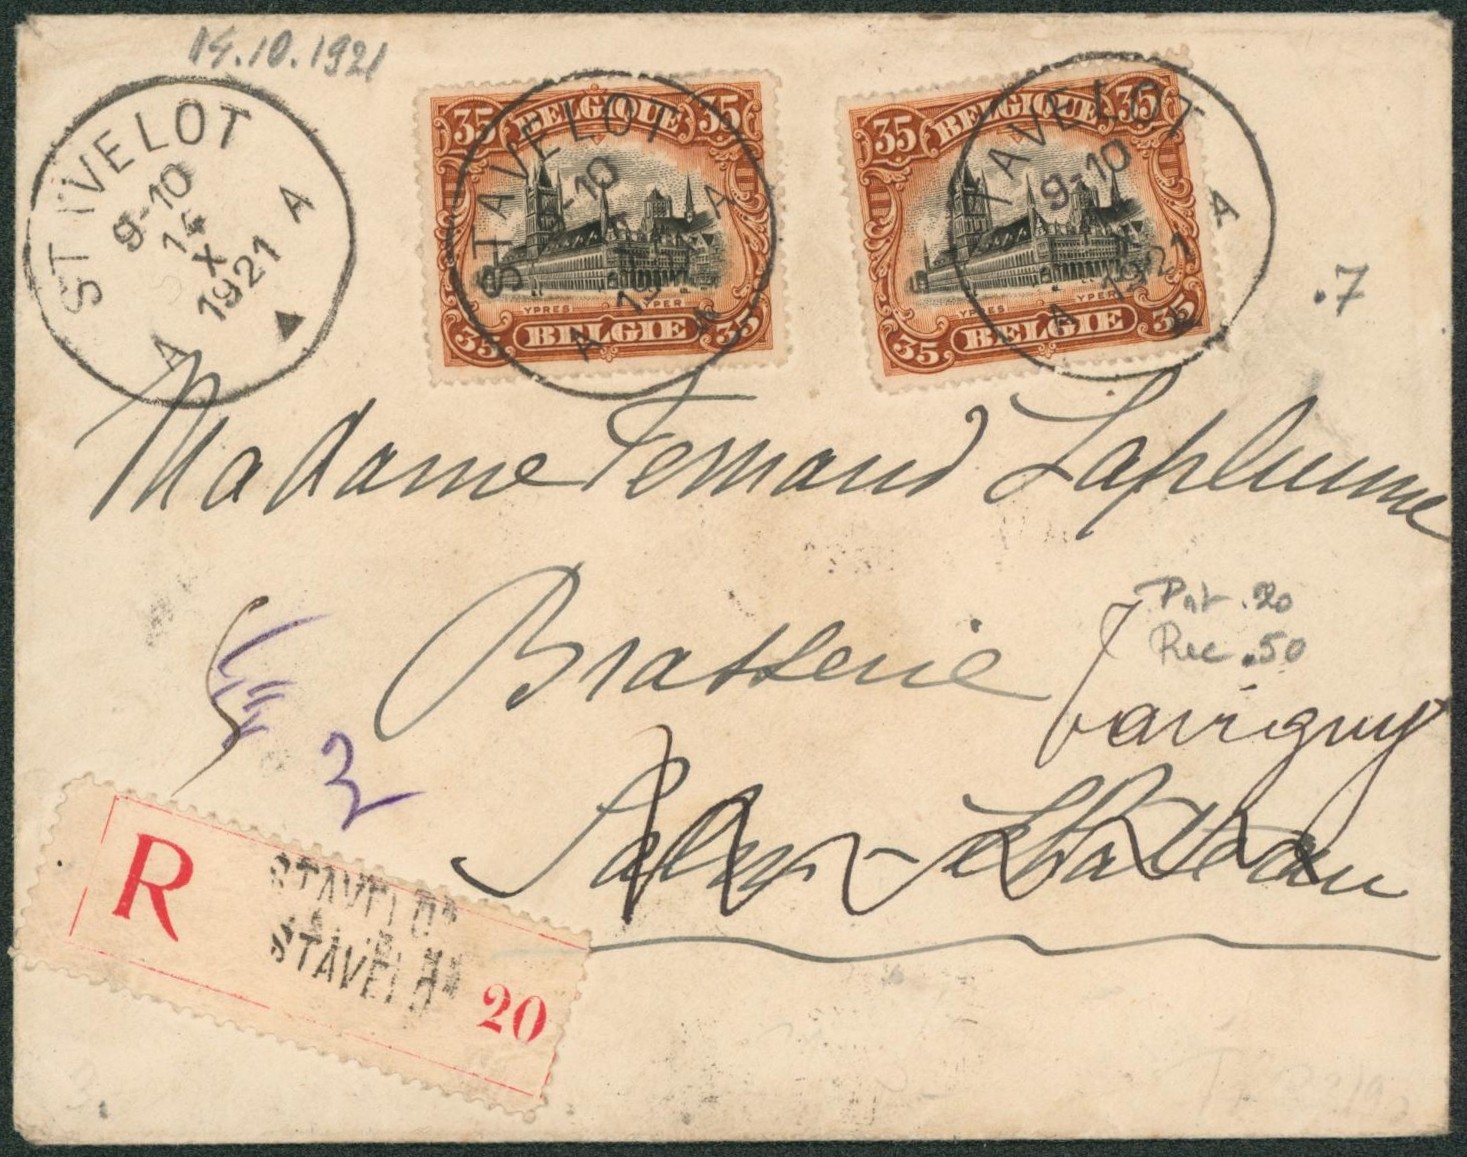 14.10.1921
STAVELOT
9-10
14
X
1921
A A
35 BELGIQUE 35
YPRES YPER
35 BELGIE 35
STAVELOT
9-10
A A
35 BELGIQUE 35
YPRES YPER
35 BELGIE 35
STAVELOT
9-10
1921
A A
.7
Madame Fernand Laplume
Brasserie
Port .20
Rec .50
Bovigny
Salm-Château
2
R
STAVELOT
STAVELOT
20